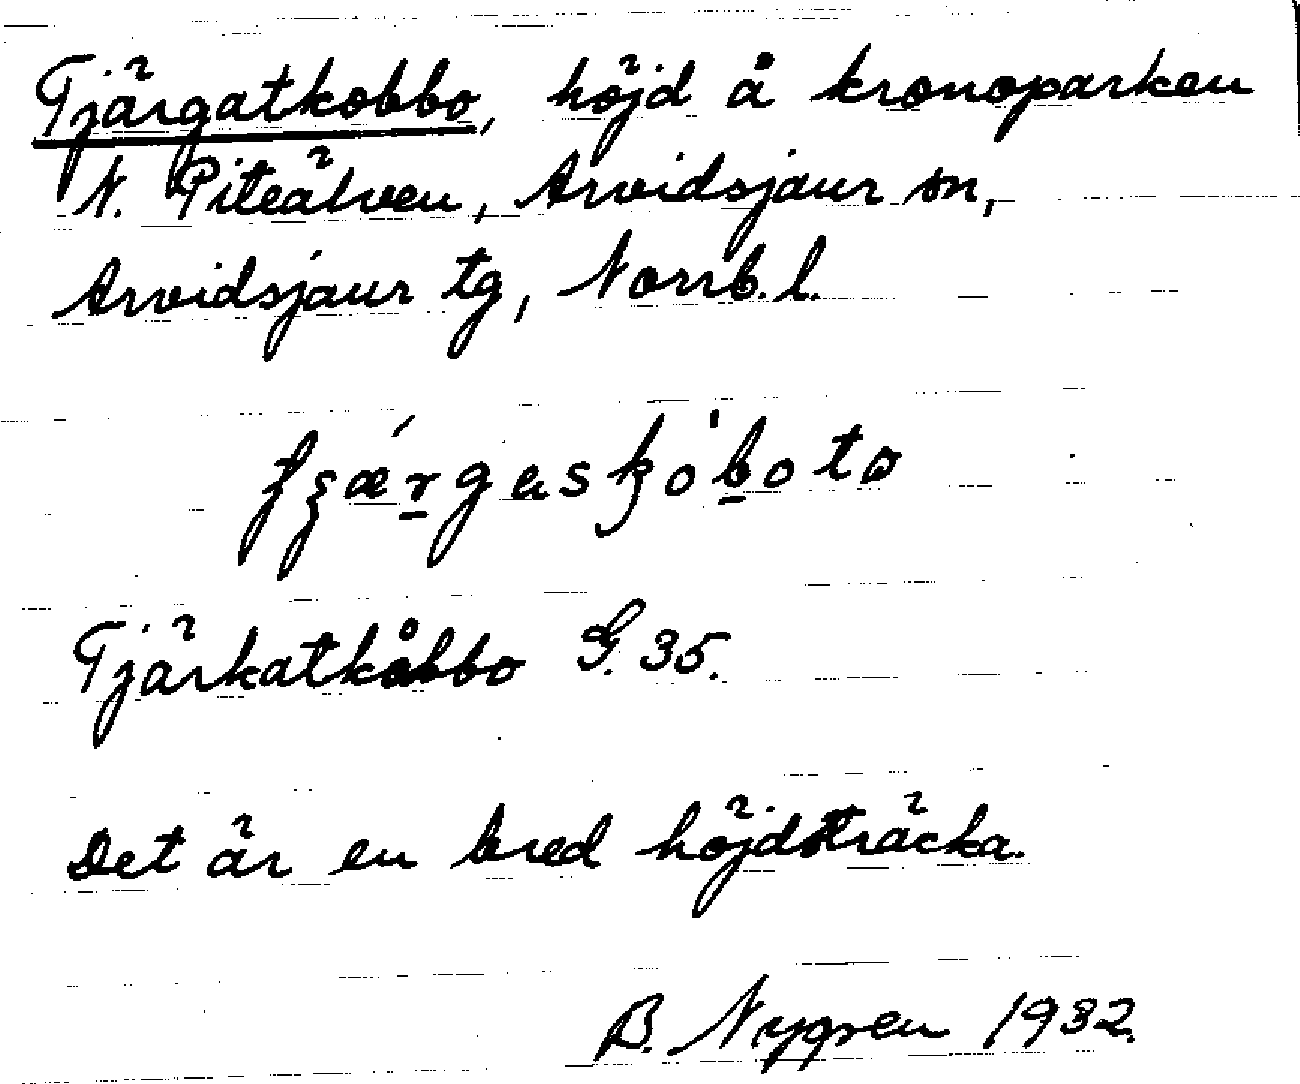 Tjärgatkobbo, höjd å kronoparken
N. Piteälven, Arvidsjaur sn,
Arvidsjaur tg, Norrb. l.
Tjärkatkåbbo G. 35.
Det är en bred höjdsträcka.
B. Nygren 1932.